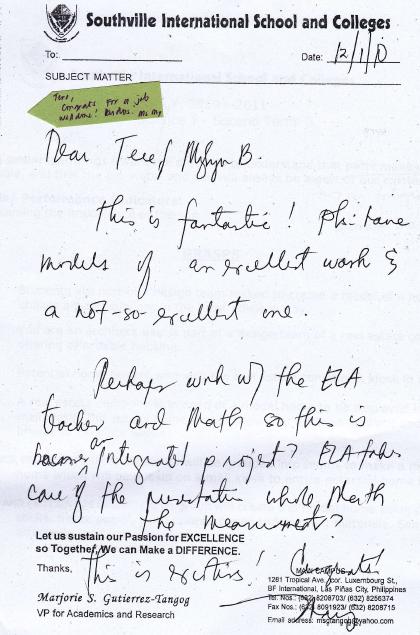 Southville International School and Colleges
To:
Date: 12/1/10
SUBJECT MATTER
Tere,
Congrats for a job
well done!
Dear Tere/ Mylyn B.
This is fantastic! Pls. have
models of an excellent work &
a not-so-excellent one.
Perhaps work w/ the ELA
teacher and Math so this is
becomes an integrated project? ELA takes
care of the presentation while Math
the measurement?
Let us sustain our Passion for EXCELLENCE
so Together, We can Make a DIFFERENCE.
Thanks,
This is exciting! Congrats!
Marjorie S. Gutierrez-Tangog
VP for Academics and Research
1281 Tropical Ave., cor. Luxembourg St.,
BF International, Las Piñas City, Philippines
Tel. Nos.: (632) 8208702/ (632) 8256374
Fax Nos.: (632) 8091923/ (632) 8208715
Email address: